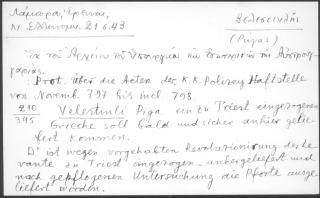 Λάμπρου, Βελεσινλῆς
Ν. Ἑλληνομν. 21 σ. 43 (Ρήγας)
Ἐκ τοῦ Ἀρχείου τοῦ Ὑπουργείου τῶν Ἐσωτερικῶν τῆς
γαρίας.
Prot. über die Acten der K.K. Polizey Haftstelle
von Novemb. 797 bis incl 798.
210 Velestinli Riga ein zu Triest eingezogener
395 Grieche soll bald und sicher anhier gelie-
fert kommen.
Dº ist wegen vorgehabten Revolutionirung des Le-
vante zu Triest eingezogen - anhergeliefert und
nach gepflogenen Untersuchung die Pforte ausge-
liefert worden.